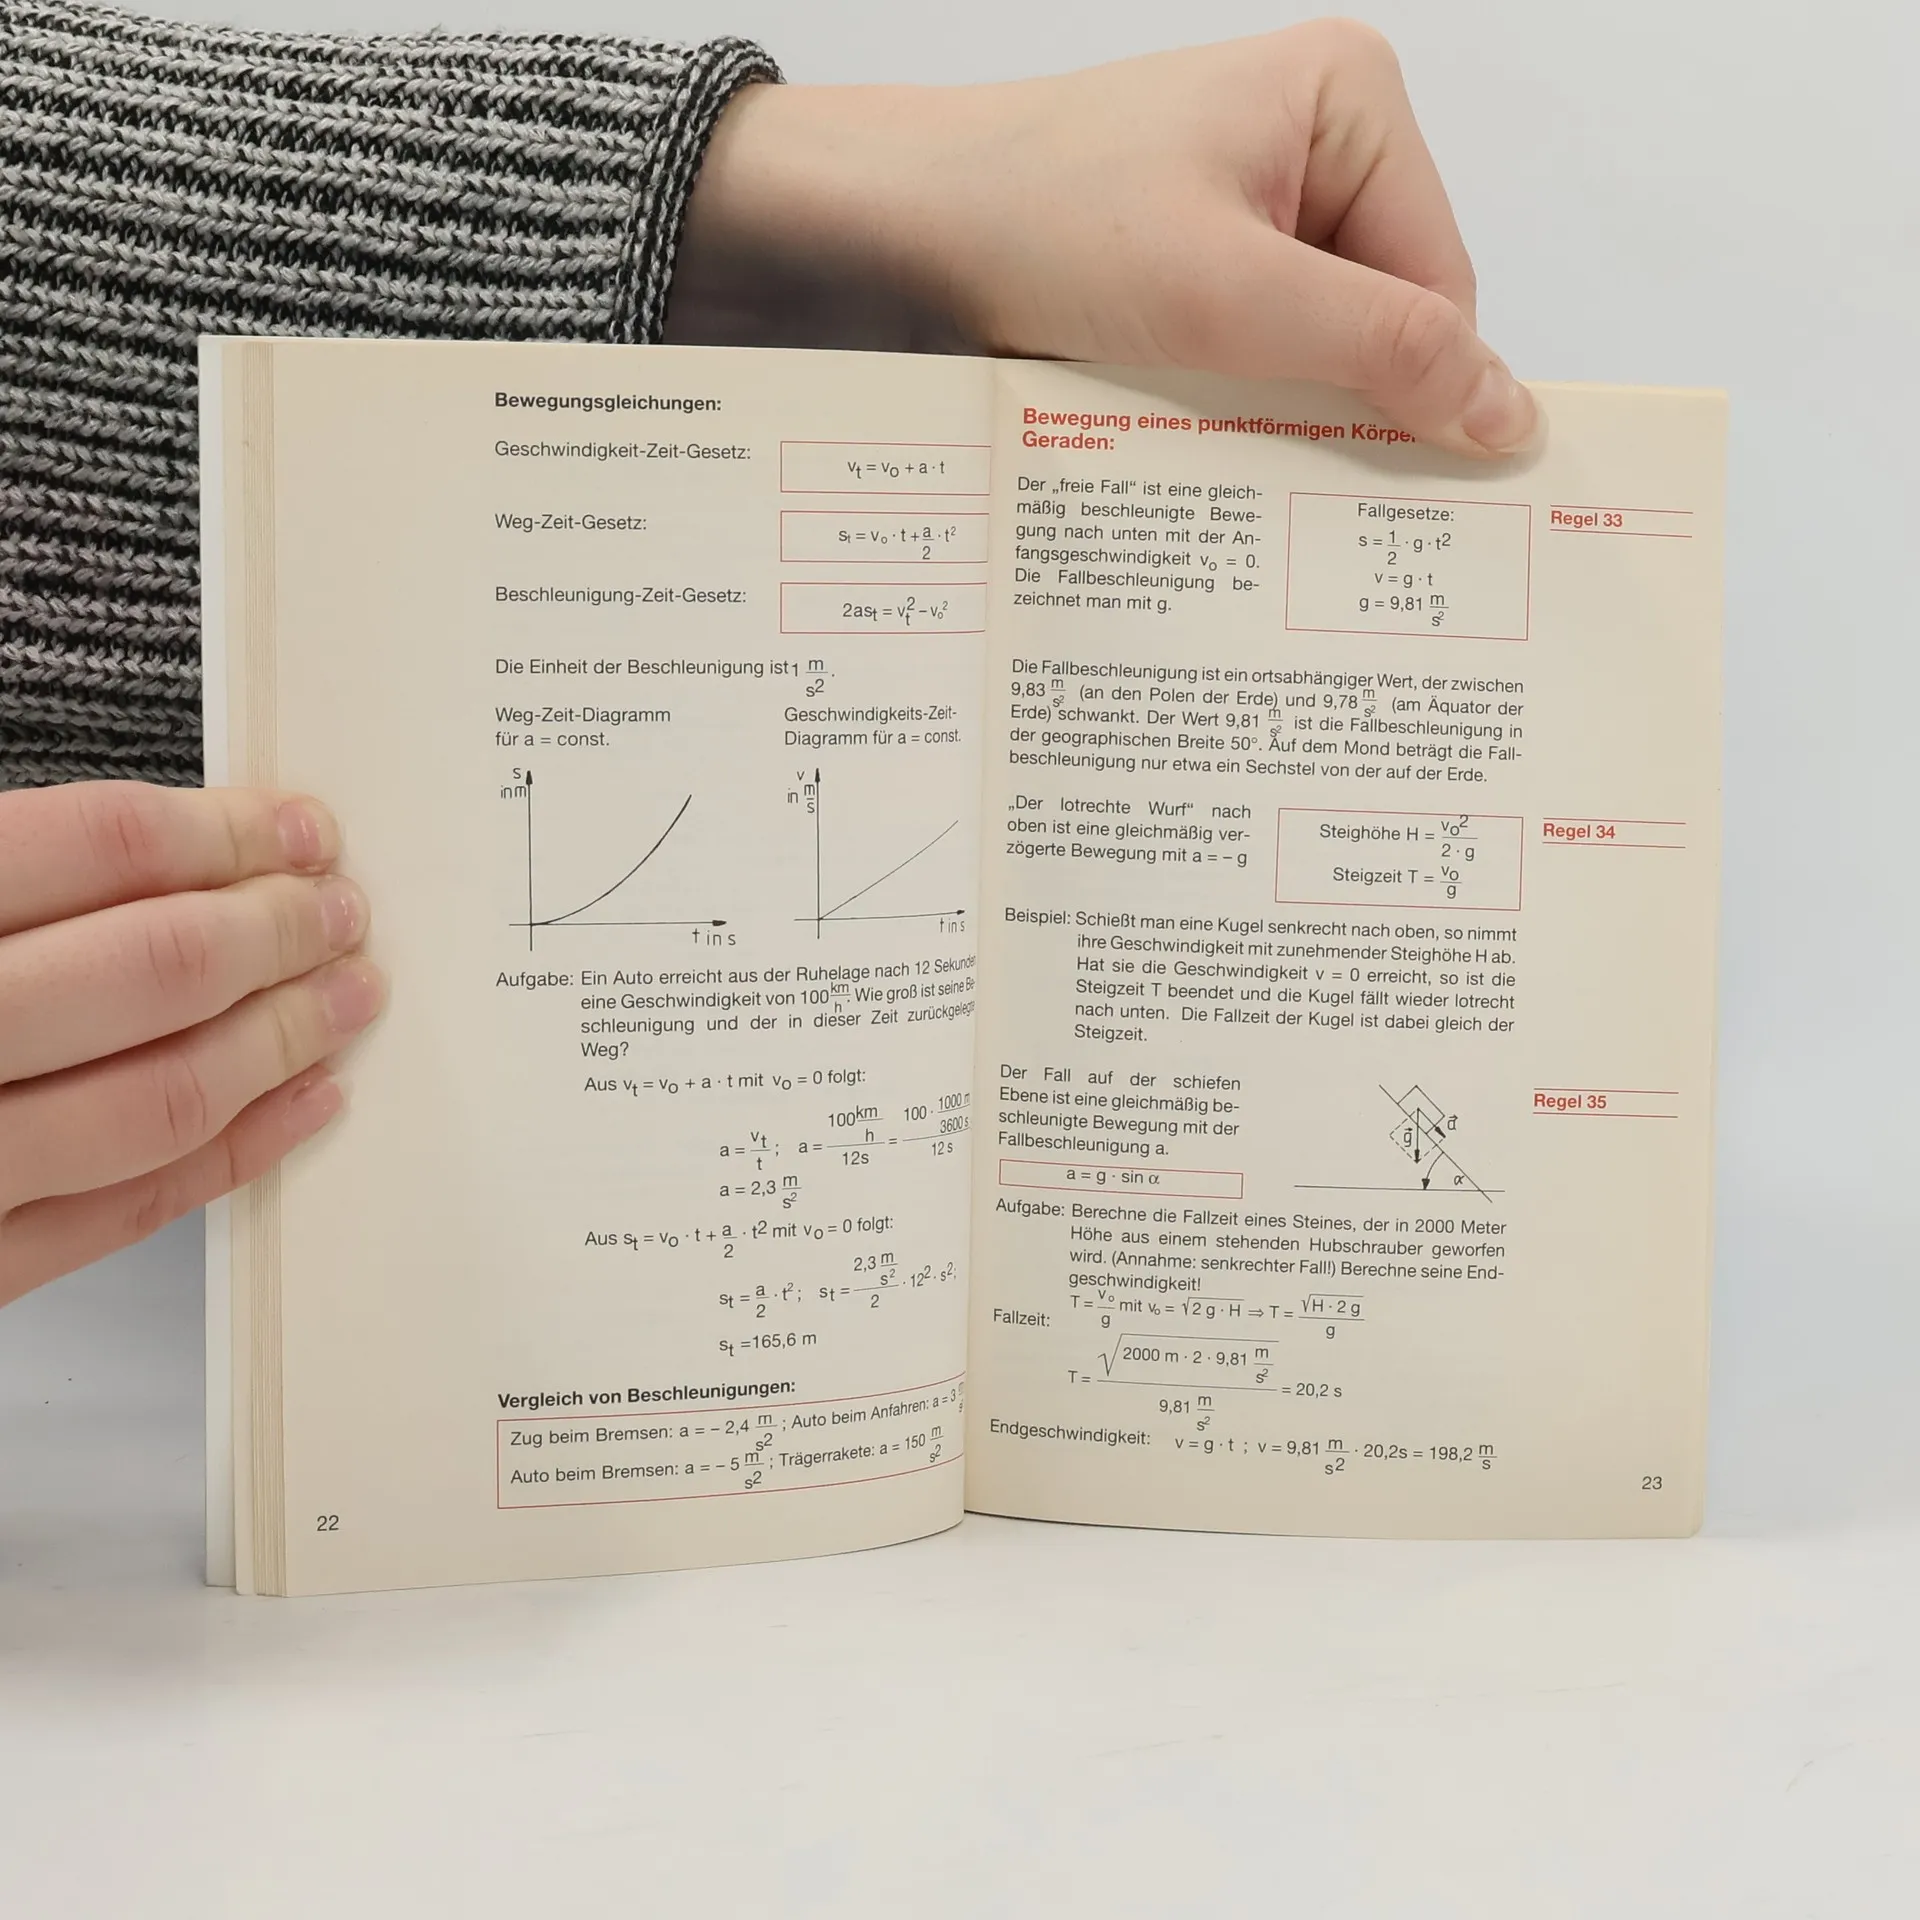 Bewegungsgleichungen:
Geschwindigkeit-Zeit-Gesetz:
vt = vo + a · t
Weg-Zeit-Gesetz:
st = vo · t + a/2 · t²
Beschleunigung-Zeit-Gesetz:
2ast = vt² – vo²
Die Einheit der Beschleunigung ist 1 m/s².
Weg-Zeit-Diagramm
für a = const.
s
in m
t in s
Geschwindigkeits-Zeit-
Diagramm für a = const.
v
in m/s
t in s
Aufgabe: Ein Auto erreicht aus der Ruhelage nach 12 Sekunden
eine Geschwindigkeit von 100 km/h. Wie groß ist seine Be-
schleunigung und der in dieser Zeit zurückgelegte
Weg?
Aus vt = vo + a · t mit vo = 0 folgt:
a = vt/t ; a = 100 km/h / 12s = 100 · 1000 m/3600 s / 12 s
a = 2,3 m/s²
Aus st = vo · t + a/2 · t² mit vo = 0 folgt:
st = a/2 · t² ; st = 2,3 m/s² / 2 · 12² · s²;
st = 165,6 m
Vergleich von Beschleunigungen:
Zug beim Bremsen: a = – 2,4 m/s² ; Auto beim Anfahren: a = 3
Auto beim Bremsen: a = – 5 m/s² ; Trägerrakete: a = 150 m/s²
22
Bewegung eines punktförmigen
Geraden:
Der „freie Fall“ ist eine gleich-
mäßig beschleunigte Bewe-
gung nach unten mit der An-
fangsgeschwindigkeit vo = 0.
Die Fallbeschleunigung be-
zeichnet man mit g.
Fallgesetze:
s = 1/2 · g · t²
v = g · t
g = 9,81 m/s²
Regel 33
Die Fallbeschleunigung ist ein ortsabhängiger Wert, der zwischen
9,83 m/s² (an den Polen der Erde) und 9,78 m/s² (am Äquator der
Erde) schwankt. Der Wert 9,81 m/s² ist die Fallbeschleunigung in
der geographischen Breite 50°. Auf dem Mond beträgt die Fall-
beschleunigung nur etwa ein Sechstel von der auf der Erde.
„Der lotrechte Wurf“ nach
oben ist eine gleichmäßig ver-
zögerte Bewegung mit a = – g
Steighöhe H = vo²/2 · g
Steigzeit T = vo/g
Regel 34
Beispiel: Schießt man eine Kugel senkrecht nach oben, so nimmt
ihre Geschwindigkeit mit zunehmender Steighöhe H ab.
Hat sie die Geschwindigkeit v = 0 erreicht, so ist die
Steigzeit T beendet und die Kugel fällt wieder lotrecht
nach unten. Die Fallzeit der Kugel ist dabei gleich der
Steigzeit.
Der Fall auf der schiefen
Ebene ist eine gleichmäßig be-
schleunigte Bewegung mit der
Fallbeschleunigung a.
a = g · sin α
a⃗
g⃗
α
Regel 35
Aufgabe: Berechne die Fallzeit eines Steines, der in 2000 Meter
Höhe aus einem stehenden Hubschrauber geworfen
wird. (Annahme: senkrechter Fall!) Berechne seine End-
geschwindigkeit!
Fallzeit: T = vo/g mit vo = √2 g · H ⇒ T = √H · 2 g / g
T = √2000 m · 2 · 9,81 m/s² / 9,81 m/s² = 20,2 s
Endgeschwindigkeit: v = g · t ; v = 9,81 m/s² · 20,2s = 198,2 m/s
23